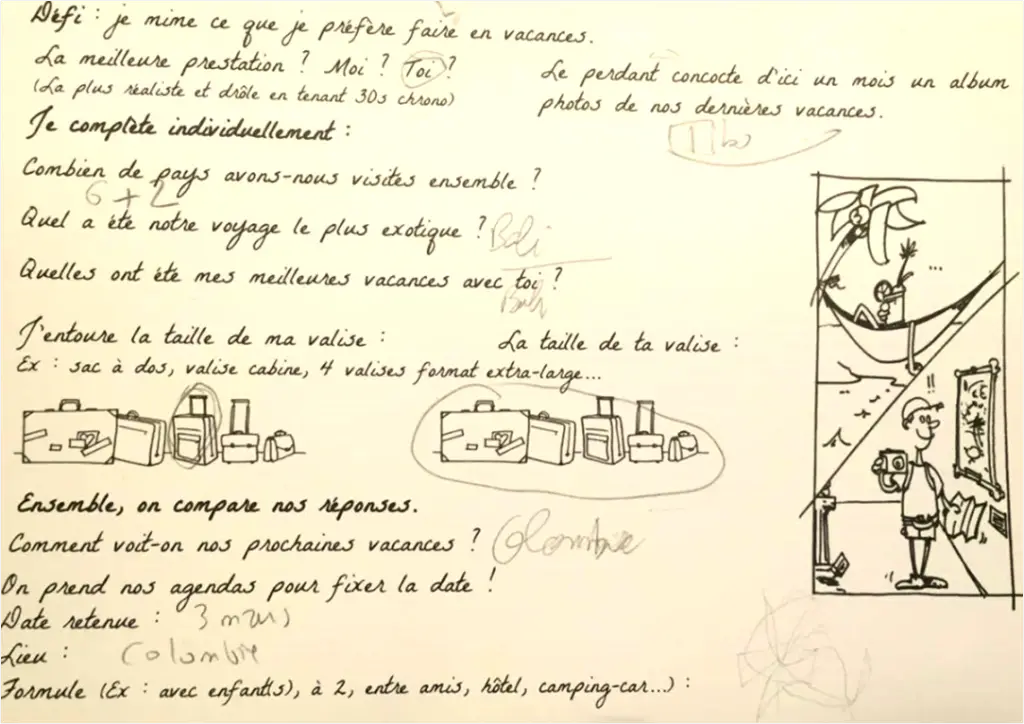 Défi : je mime ce que je préfère faire en vacances.
La meilleure prestation ? Moi ? Toi ?
(La plus réaliste et drôle en tenant 30s chrono)
Le perdant concocte d'ici un mois un album
photos de nos dernières vacances.
Je complète individuellement :
Combien de pays avons-nous visités ensemble ?
6 + 2
Quel a été notre voyage le plus exotique ? Bali
Quelles ont été mes meilleures vacances avec toi ?
Bali
J'entoure la taille de ma valise :
La taille de ta valise :
Ex : sac à dos, valise cabine, 4 valises format extra-large...
...
!!
Ensemble, on compare nos réponses.
Comment voit-on nos prochaines vacances ? Colombie
On prend nos agendas pour fixer la date !
Date retenue : 3 mars
Lieu : Colombie
Formule (Ex : avec enfant(s), à 2, entre amis, hôtel, camping-car...) :